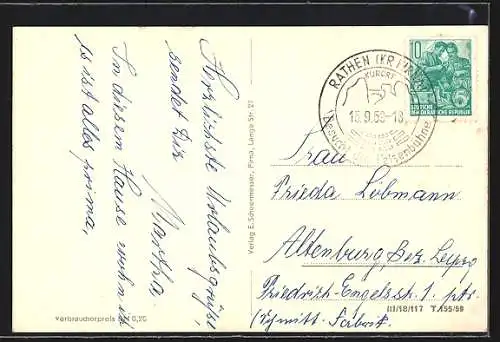 Herzlichste Urlaubsgrüße
sendet Dir
Martha.
In diesem Hause wohn ich
es ist alles prima,
Verbraucherpreis DM 0,20
Verlag E. Schoermesser, Pirna, Lange Str. 21
RATHEN (KR PIRNA)
KURORT
Besucht die Felsenbühne
10
DEUTSCHE
DEMOKRATISCHE REPUBLIK
Frau
Frieda Löbmann
Altenburg, Bez. Leipzg
Friedrich-Engelsstr. 1 ptr.
III/18/117 T.155/59